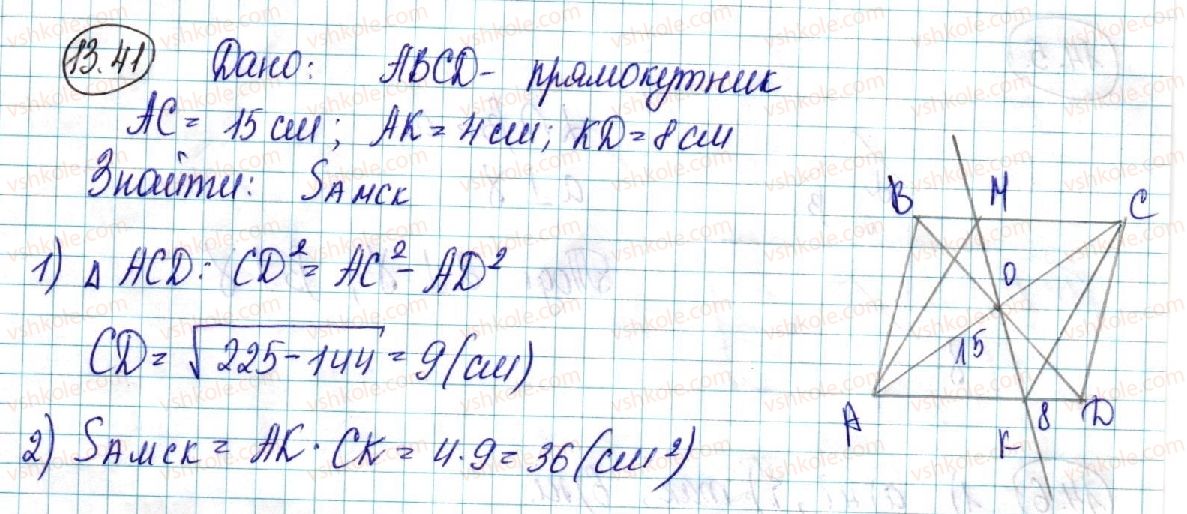 13.41 Дано: ABCD - прямокутник
AC = 15 см; AK = 4 см; KD = 8 см
Знайти: SАМСК
1) Δ ACD: CD² = AC² - AD²
CD = √225-144 = 9 (см)
2) SАМСК = AK · CK = 4·9 = 36 (см²)
B M C
O
15
A K 8 D
vshkole.com